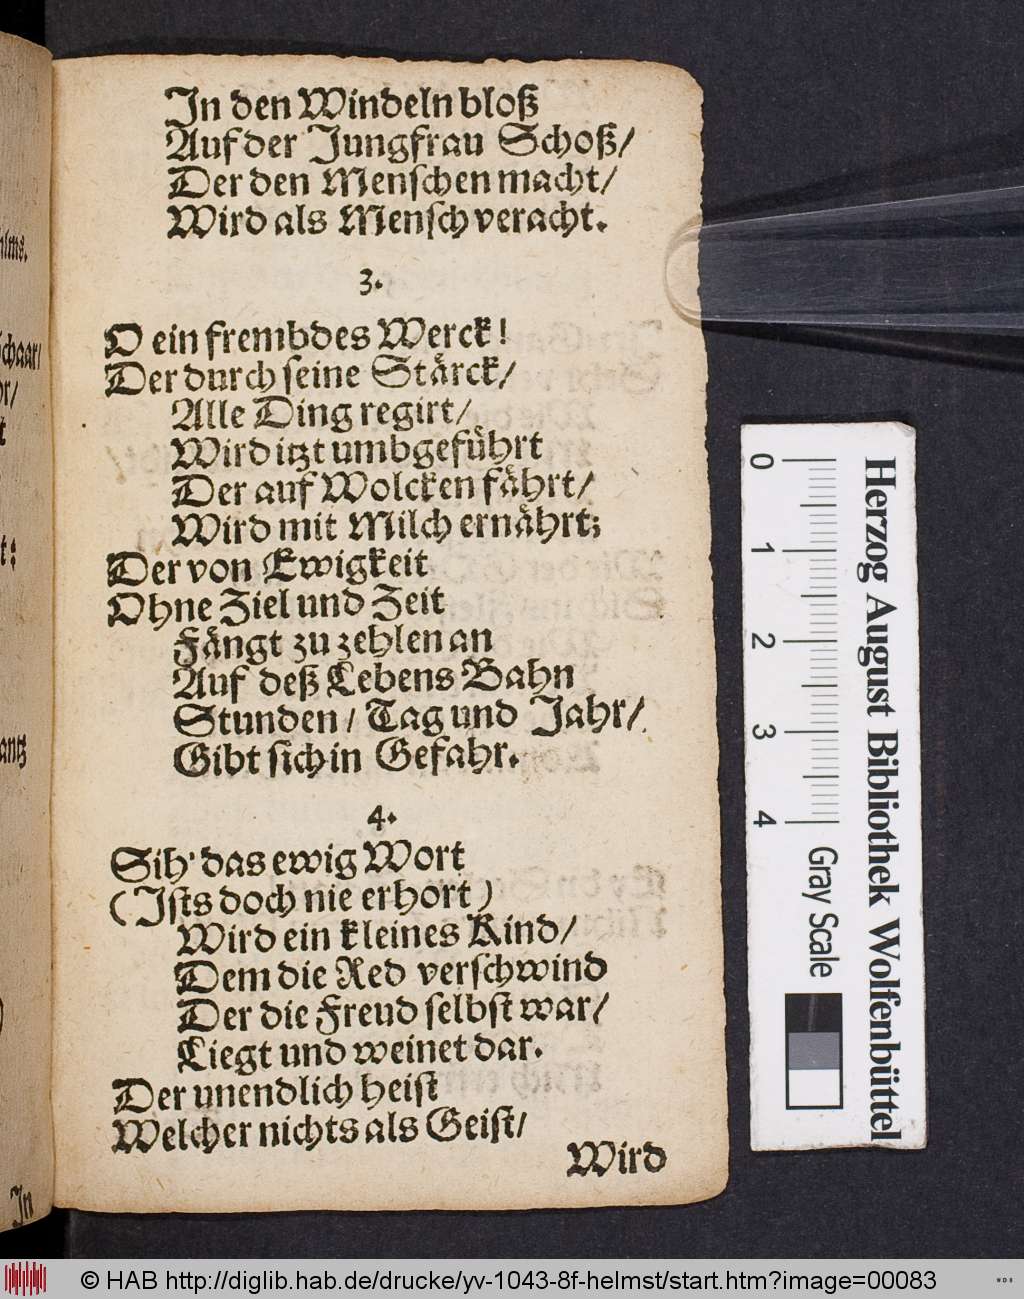 nims.
chaar/
hr/
t
t:
antz
)
Jn
Jn den Windeln bloß
Auf der Jungfrau Schoß/
Der den Menschen macht/
Wird als Mensch veracht.
3.
O ein frembdes Werck!
Der durch seine Stärck/
Alle Ding regirt/
Wird itzt umbgeführt
Der auf Wolcken fährt/
Wird mit Milch ernährt;
Der von Ewigkeit
Ohne Ziel und Zeit
Fängt zu zehlen an
Auf deß Lebens Bahn
Stunden/ Tag und Jahr/
Gibt sich in Gefahr.
4.
Sih' das ewig Wort
(Jsts doch nie erhort)
Wird ein kleines Kind/
Dem die Red verschwind
Der die Freud selbst war/
Liegt und weinet dar.
Der unendlich heist
Welcher nichts als Geist/
Wird
0
1
2
3
4
Gray Scale
Herzog August Bibliothek Wolfenbüttel
© HAB http://diglib.hab.de/drucke/yv-1043-8f-helmst/start.htm?image=00083
WDB